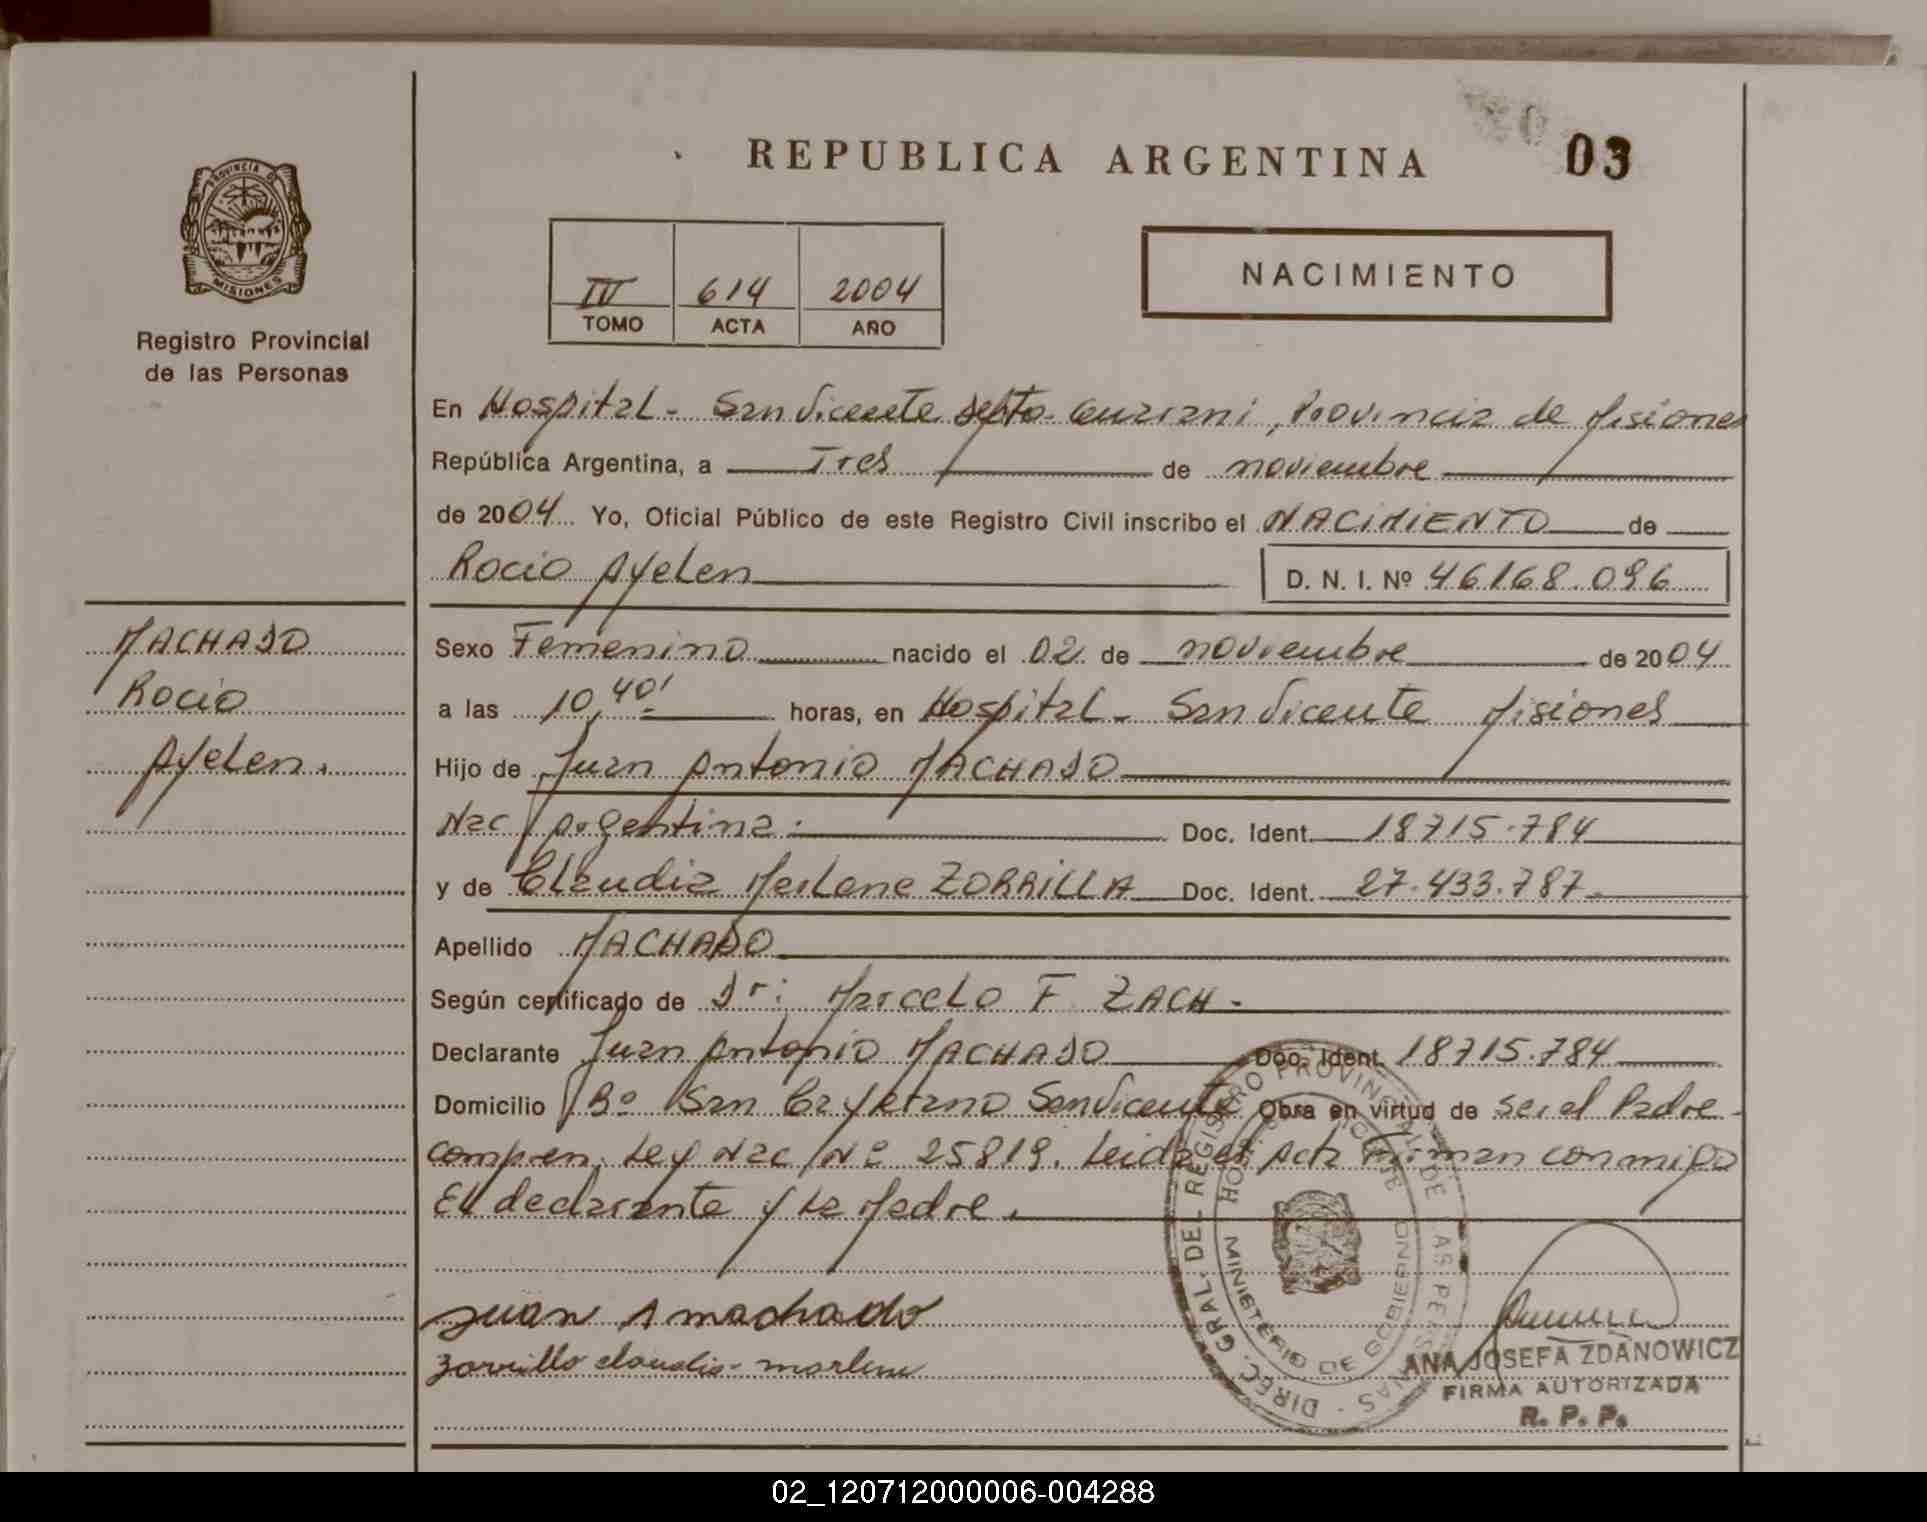 REPUBLICA ARGENTINA
03
PROVINCIA D
MISIONES
Registro Provincial
de las Personas
IV 614 2004
TOMO ACTA AÑO
NACIMIENTO
En Hospital - San Vicente Depto. Guarani, Provincia de Misiones
República Argentina, a Tres de noviembre
de 2004 Yo, Oficial Público de este Registro Civil inscribo el NACIMIENTO de
Rocio Ayelen D. N. I. Nº 46.168.096
MACHADO
Rocio
Ayelen.
Sexo Femenino nacido el 02 de noviembre de 2004
a las 10,40' horas, en Hospital - San Vicente Misiones
Hijo de Juan Antonio MACHADO
Nac Argentina. Doc. Ident. 18715.784
y de Claudia Merlene ZORRILLA Doc. Ident. 27.433.787.
Apellido MACHADO
Según certificado de Dr: Marcelo F. ZACH.
Declarante Juan Antonio MACHADO Doc. Ident. 18715.784
Domicilio Bº San Cayetano San Vicente Obra en virtud de ser el Padre
compren. Ley Nac Nº 25819. Leida el Acta Firman conmigo
El declarante y la Madre.
Juan A machado
Zorrilla claudia marlene
DIREC. GRAL. DEL REGISTRO PROVINCIAL DE LAS PERSONAS
MINISTERIO DE GOBIERNO
ANA JOSEFA ZDANOWICZ
FIRMA AUTORIZADA
R. P. P.
02_120712000006-004288